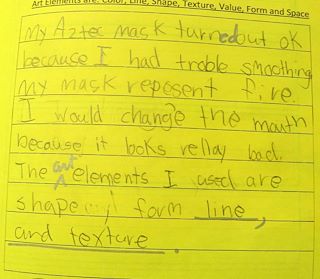 Art Elements are: Color, Line, Shape, Texture, Value, Form and Space
My Aztec mask turned out ok
because I had troble smoothing
my mask reposent fire.
I would change the mouth
because it looks rellay bad.
The art elements I used are
shape, form line,
and texture.